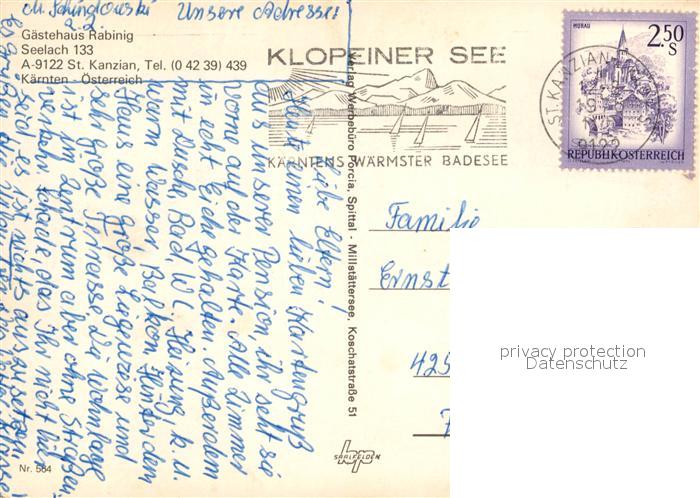 M. Schinglowski Unsere Adresse:
Gästehaus Rabinig
Seelach 133
A-9122 St. Kanzian, Tel. (0 42 39) 439
Kärnten - Österreich
KLOPEINER SEE
KÄRNTENS WÄRMSTER BADESEE
ST. KANZIAN
9122
MURAU
2.50
S
REPUBLIK ÖSTERREICH
Verlag Werbebüro Porcia, Spittal - Millstättersee, Koschatstraße 51
Liebe Eltern!
Heute einen lieben Kartengruß
aus unserer Pension, ihr seht sie
vorne auf der Karte. Alle Zimmer
in echt Eiche gehalten. Außerdem
mit Dusche Bad WC Heizung, k.u.
warm Wasser Balkon. Hinter dem
Haus eine große Liegewiese und
sehr große Terrasse. Die Wohnlage
ist im Zentrum aber ohne Straßen
Schade, das ihr nicht hier
seid, es ist nichts auszusetzen.
Familie
Ernst
425
hp
SAALFELDEN
Nr. 564
privacy protection
Datenschutz